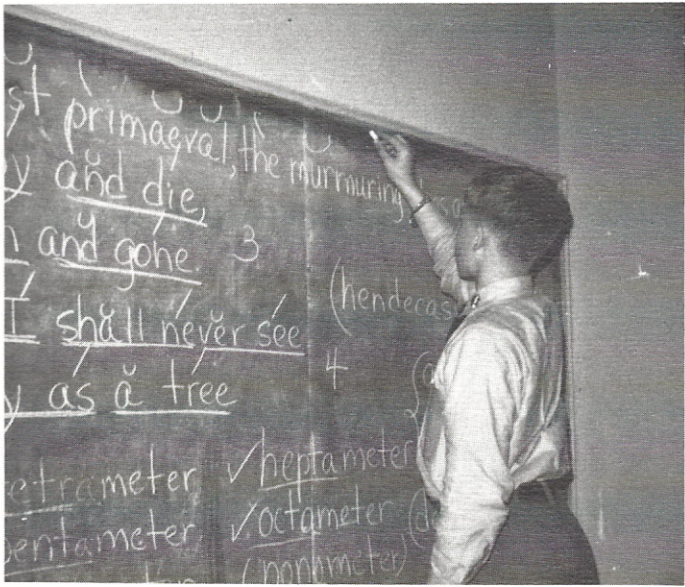 st primaeval, the murmuring
y and die,
n and gone. 3
(hendecas
I shall never see
4
y as a tree
etrameter ✓heptameter
entameter ✓octameter (d
(nonameter)